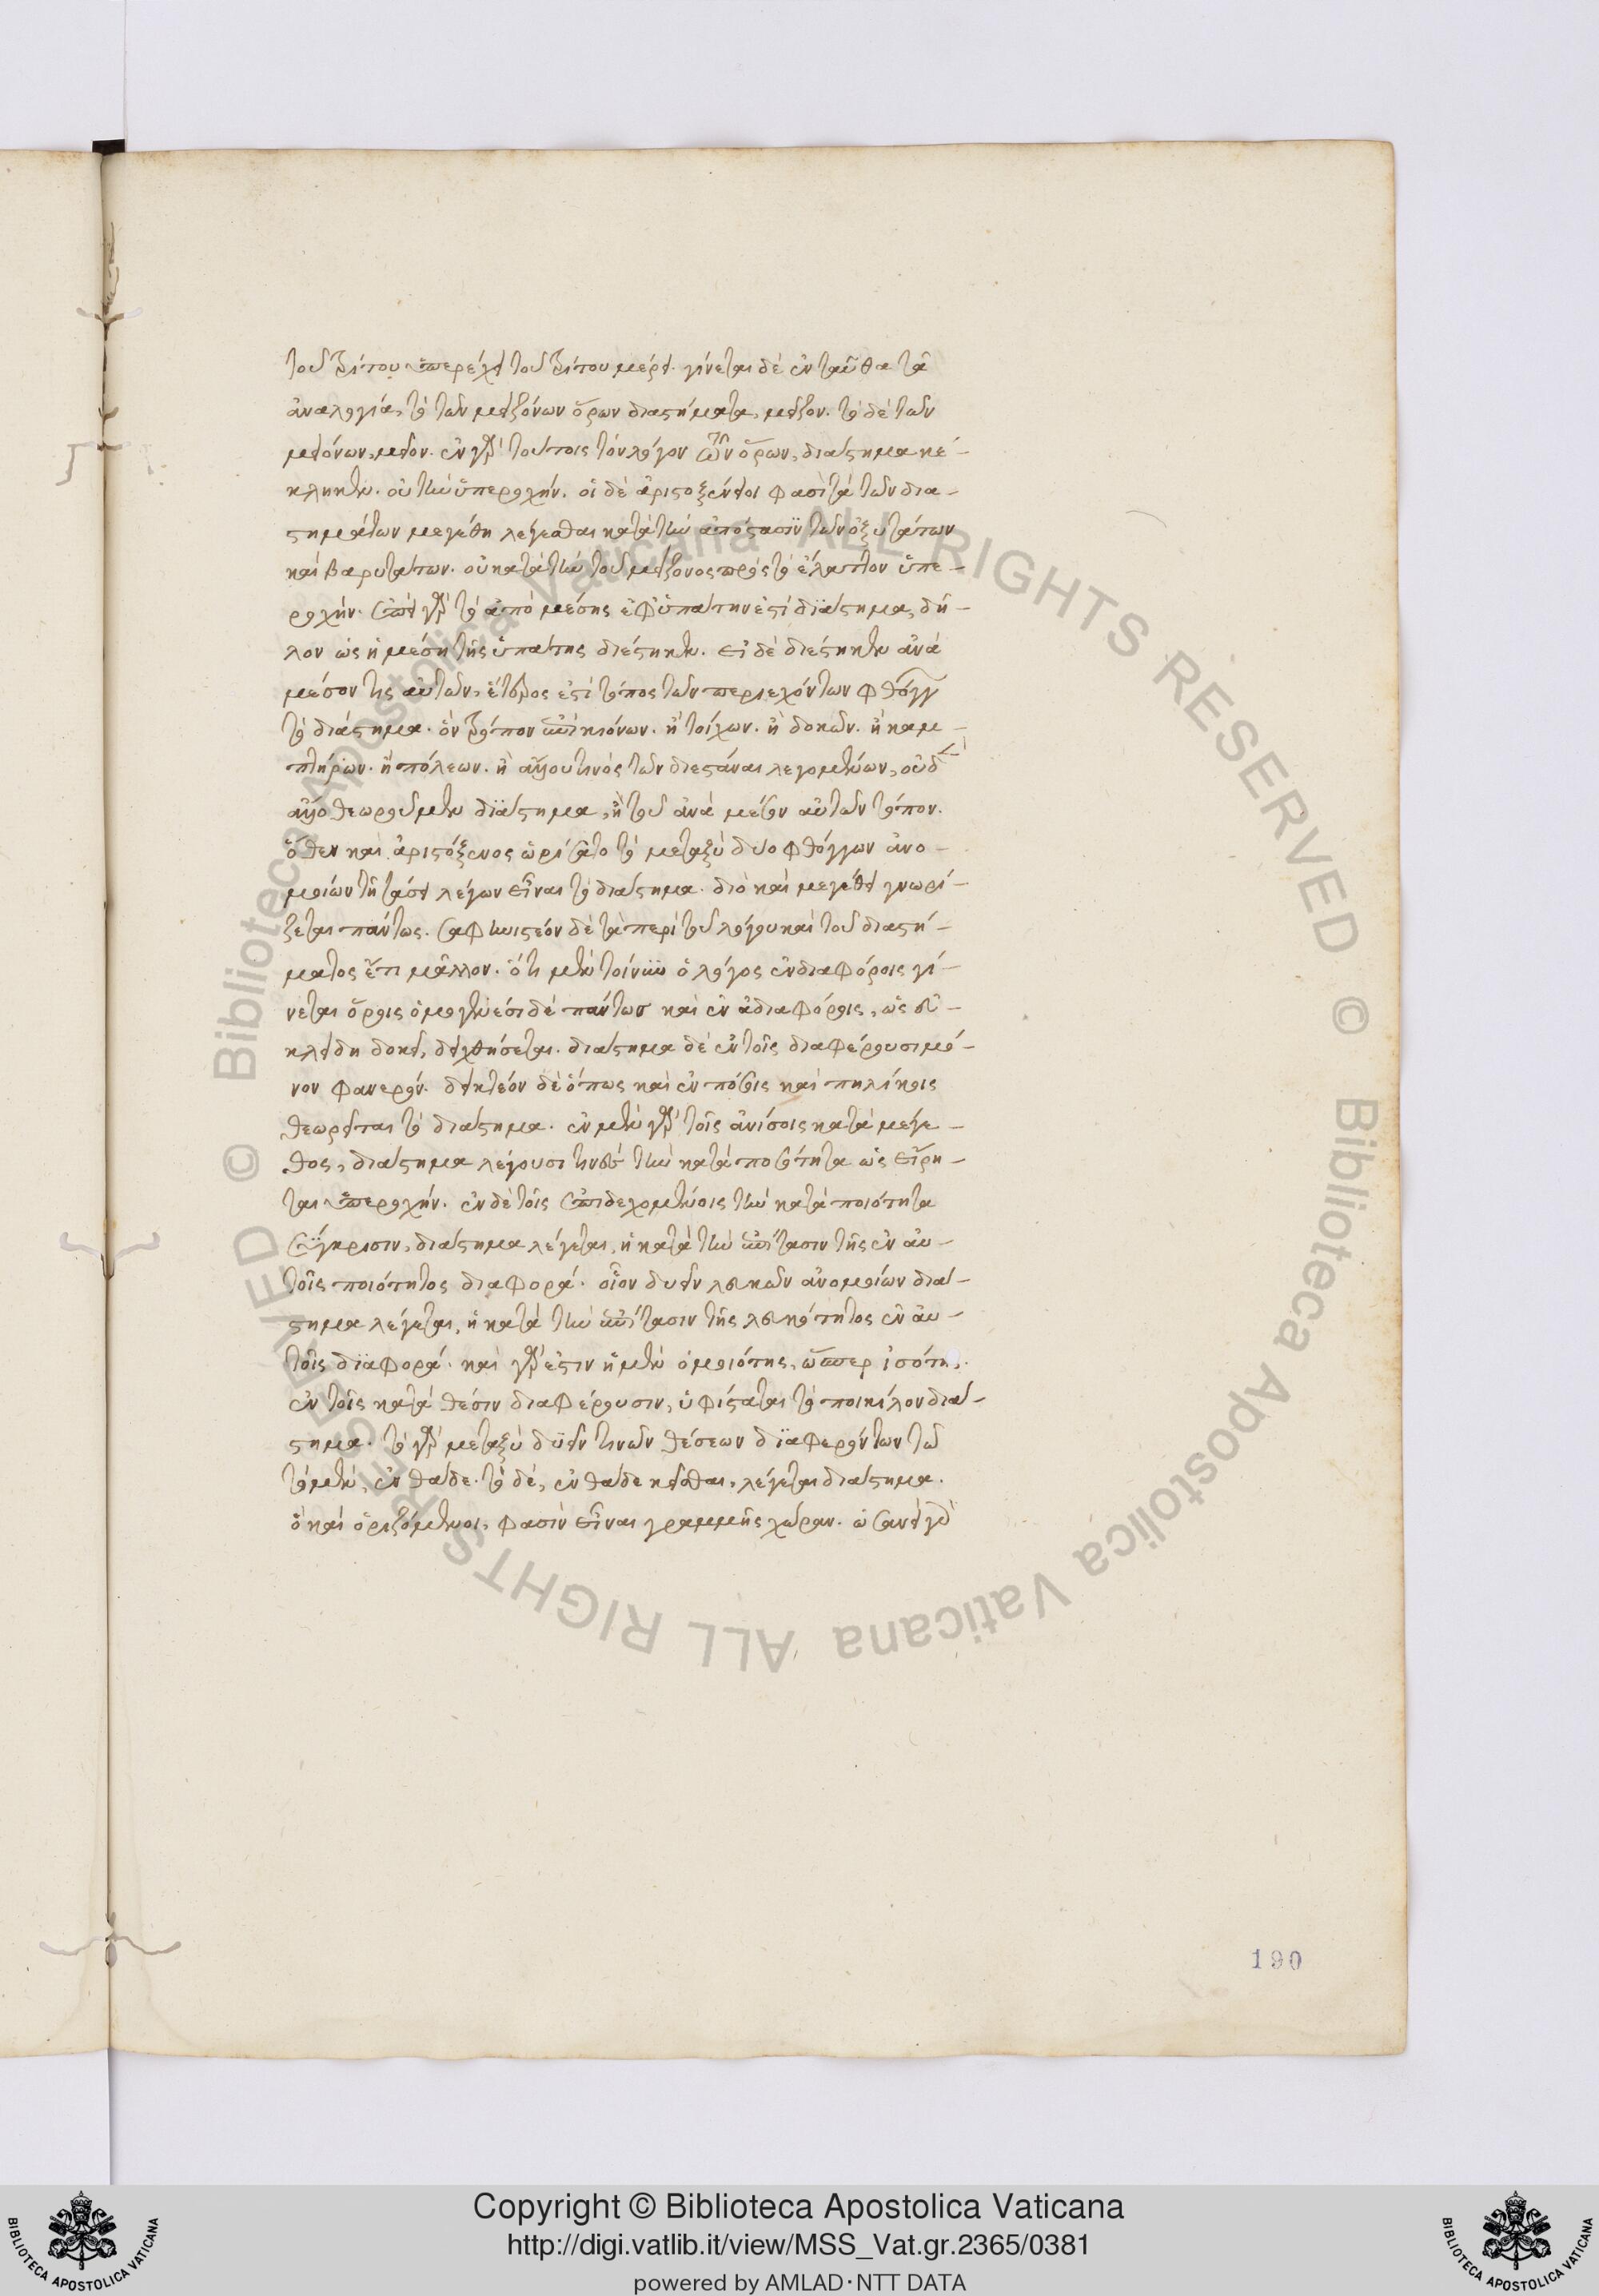 τοῦ τρίτου ὑπερέχει τοῦ τρίτου μέρει. γίνεται δὲ ἐνταῦθα τῇ
ἀναλογίᾳ, τὸ τῶν μειζόνων ὅρων διαστήματα, μεῖζον. τὸ δὲ τῶν
μειόνων, μεῖον. ἐν γὰρ τούτοις τὸν λόγον τῶν ὅρων, διάστημα κέ-
κληκεν. οὐ τὴν ὑπεροχήν. οἱ δὲ ἀριστοξένειοι φασὶ τὰ τῶν δια-
στημάτων μεγέθη λέγεσθαι κατὰ τὴν ἀπόστασϊν τῶν ὀξυτάτων
καὶ βαρυτάτων. οὐ κατὰ τὴν τοῦ μείζονος πρὸς τὸ ἔλαττον ὑπε-
ροχήν. ἐπεὶ γὰρ τὸ ἀπὸ μέσης ἐφ' ὑπάτην ἐστὶ δϊάστημα, δῆ-
λον ὡς ἡ μέση τῆς ὑπάτης διέστηκεν. εἰ δὲ διέστηκεν ἀνὰ
μέσον τις αὐτῶν, ἕτερος ἐστὶ τόπος τῶν περιεχόντων φθόγγ
τὸ διάστημα. ὃν τρόπον ἐπὶ κιόνων. ἢ τοίχων. ἢ δοκῶν. ἢ καμ-
πτήρων. ἢ πόλεων. ἢ ἄλλου τινὸς τῶν διεστάναι λεγομένων, οὐδὲν
ἄλλο θεωροῦμεν δϊάστημα, ἢ τοῦ ἀνὰ μέσον αὐτῶν τόπον.
ὅθεν καὶ ἀριστόξενος ὡρίσατο τὸ μεταξὺ δύο φθόγγων ἀνο-
μοίων τῇ τάσει λέγων εἶναι τὸ διάστημα. διὸ καὶ μεγέθει γνωρί-
ζεται πάντως. σαφηνιστέον δὲ τὰ περὶ τοῦ λόγου καὶ τοῦ διαστή-
ματος ἔτι μᾶλλον. ὅτι μὲν τοίνυν ὁ λόγος ἐν διαφόροις γί-
νεται ὅροις ὁμογενέσι δὲ πάντως καὶ ἐν ἀδιαφόροις, ὡς εὐ-
κλείδῃ δοκεῖ, δειχθήσεται. διάστημα δὲ ἐν τοῖς διαφέρουσι μό-
νον φανερόν. δεικτέον δὲ ὅπως καὶ ἐν πόσοις καὶ πηλίκοις
θεωρεῖται τὸ διάστημα. ἐν μὲν γὰρ τοῖς ἀνίσοις κατὰ μέγε-
θος, διάστημα λέγουσι τινὲς τὴν κατὰ ποσότητα ὡς εἴρη-
ται ὑπεροχήν. ἐν δὲ τοῖς ἐπιδεχομένοις τὴν κατὰ ποιότητα
σύγκρισιν, διάστημα λέγεται, ἡ κατὰ τὴν ἐπίτασιν τῆς ἐν αὐ-
τοῖς ποιότητος διαφορά. οἷον δυεῖν λευκῶν ἀνομοίων διά-
στημα λέγεται, ἡ κατὰ τὴν ἐπίτασιν τῆς λευκότητος ἐν αὐ-
τοῖς δϊαφορά. καὶ γὰρ ἐστιν ἡ μὲν ὁμοιότης, ὥσπερ ἰσότης.
ἐν τοῖς κατὰ θέσιν διαφέρουσιν, ὑφίσταται τὸ ποικίλον διά-
στημα. τὸ γὰρ μεταξὺ δϋεῖν τινῶν θέσεων δϊαφερόντων τῷ
τὸ μὲν, ἐνθάδε. τὸ δὲ, ἐνθάδε κεῖσθαι, λέγεται διάστημα.
ὃ καὶ ὁριζόμενοι, φασὶν εἶναι γραμμῆς χώραν. ὡσανεὶ γὰρ
190
Copyright © Biblioteca Apostolica Vaticana
http://digi.vatlib.it/view/MSS_Vat.gr.2365/0381
powered by AMLAD·NTT DATA
BIBLIOTECA APOSTOLICA VATICANA
BIBLIOTECA APOSTOLICA VATICANA
© Biblioteca Apostolica Vaticana ALL RIGHTS RESERVED © Biblioteca Apostolica Vaticana ALL RIGHTS RESERVED